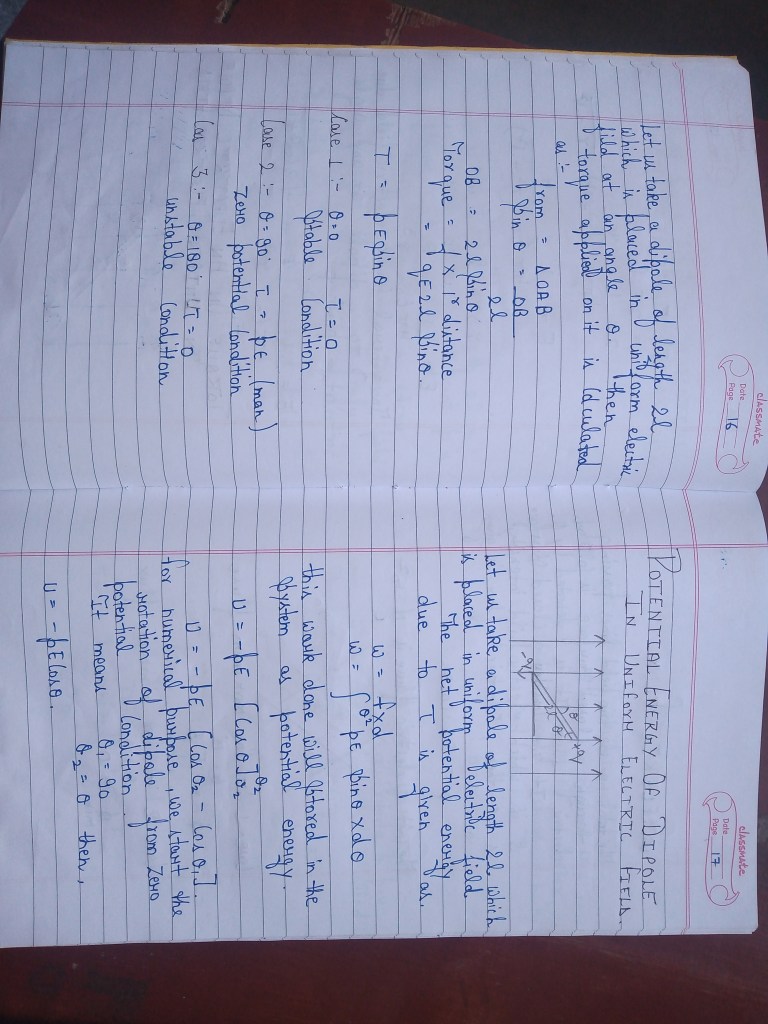 classmate
Date
Page 16
Let us take a dipole of length 2l
which is placed in uniform electric
field at an angle θ. then
torque applied on it is calculated
as:-
from = ΔOAB
sin θ = OB
2l
OB = 2l sinθ
Torque = f × 1r distance
= qE2l sinθ.
τ = pEsinθ
Case 1 :- θ=0 τ=0
stable condition
Case 2 :- θ=90° τ = pE (man)
zero potential condition
Cas 3 :- θ=180° τ=0
unstable condition
classmate
Date
Page 17
POTENTIAL ENERGY OF DIPOLE
IN UNIFORM ELECTRIC FIELD.
θ +q
2l θ
-q
Let us take a dipole of length 2l which
is placed in uniform electric field
The net potential energy
due to τ is given as.
w = f×d
w = ∫θ2 pE sinθ × dθ
this work done will stored in the
system as potential energy.
U = -pE [cos θ]θ2 θ2
U = -pE [cos θ2 - cos θ1].
for numerical purpose, we start the
rotation of dipole from zero
potential condition.
It means θ1 = 90
θ2 = θ then,
U = -pEcosθ.